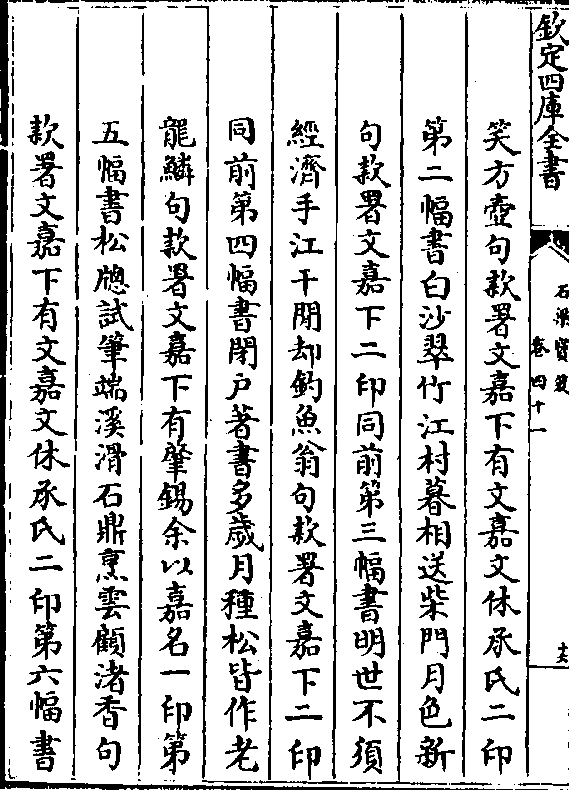 欽定四庫全書
石渠寳笈
卷四十一
十六
笑方壺句款署文嘉下有文嘉文休承氏二印
第二幅書白沙翠竹江村暮相送柴門月色新
句款署文嘉下二印同前第三幅書明世不須
經濟手江干閒却釣魚翁句款署文嘉下二印
同前第四幅書閉户著書多歲月種松皆作老
龍鱗句款署文嘉下有肇錫余以嘉名一印第
五幅書松牕試筆端溪滑石鼎烹雲顧渚香句
款署文嘉下有文嘉文休承氏二印第六幅書